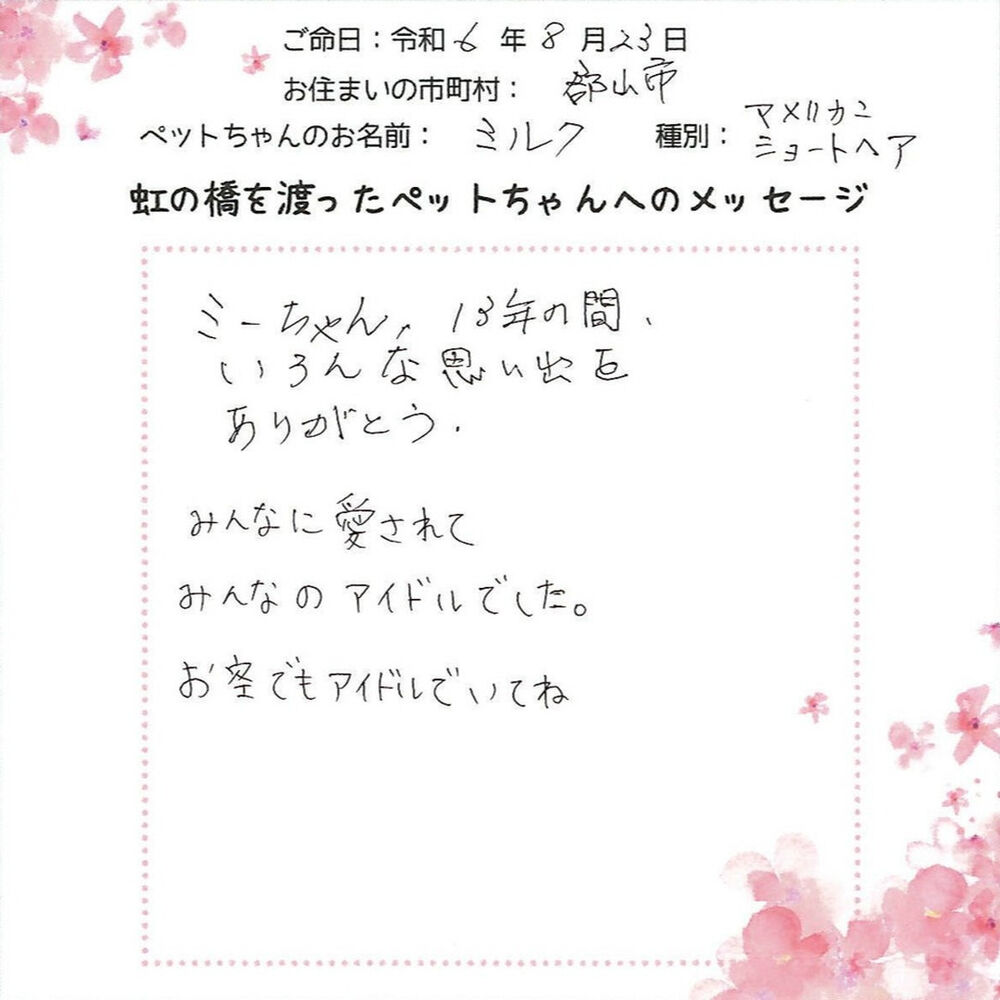 ご命日：令和6年8月23日
お住まいの市町村： 郡山市
ペットちゃんのお名前： ミルク 種別： アメリカン
ショートヘア
虹の橋を渡ったペットちゃんへのメッセージ
ミーちゃん、13年の間、
いろんな思い出を
ありがとう.
みんなに愛されて
みんなのアイドルでした。
お空でもアイドルでいてね